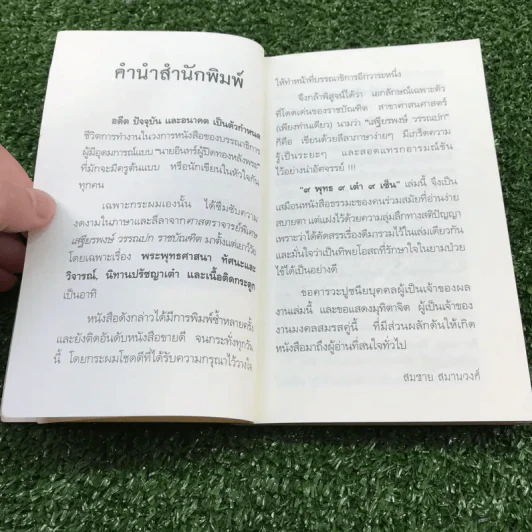 คำนำสำนักพิมพ์
อดีต ปัจจุบัน และอนาคต เป็นตัวกำหนด
ชีวิตการทำงานในวงการหนังสือของบรรณาธิการ
ผู้มีอุดมการณ์แบบ "นายอินทร์ผู้ปิดทองหลังพระ"
ที่มักจะมีครูต้นแบบ หรือนักเขียนในหัวใจกัน
ทุกคน
เฉพาะกระผมเองนั้น ได้ซึมซับความ
งดงามในภาษาและลีลาจากศาสตราจารย์พิเศษ
เสฐียรพงษ์ วรรณปก ราชบัณฑิต มาตั้งแต่เยาว์วัย
โดยเฉพาะเรื่อง พระพุทธศาสนา ทัศนะและ
วิจารณ์, นิทานปรัชญาเต๋า และเนื้อติดกระดูก
เป็นอาทิ
หนังสือดังกล่าวได้มีการพิมพ์ซ้ำหลายครั้ง
และยังติดอันดับหนังสือขายดี จนกระทั่งทุกวัน
นี้ โดยกระผมโชคดีที่ได้รับความกรุณาไว้วางใจ
ให้ทำหน้าที่บรรณาธิการอีกวาระหนึ่ง
จึงกล้าพิสูจน์ได้ว่า เอกลักษณ์เฉพาะตัว
ที่โดดเด่นของราชบัณฑิต สาขาศาสนศาสตร์
(เพียงท่านเดียว) นามว่า "เสฐียรพงษ์ วรรณปก"
ก็คือ เขียนด้วยลีลาภาษาง่ายๆ มีเกร็ดความ
รู้เป็นระยะๆ และสอดแทรกอารมณ์ขัน
ไว้อย่างน่าอัศจรรย์ !!!
"๙ พุทธ ๙ เต๋า ๙ เซ็น" เล่มนี้ จึงเป็น
เสมือนหนังสือธรรมะของคนร่วมสมัยที่อ่านง่าย
สบายตา แต่แฝงไว้ด้วยความลุ่มลึกทางสติปัญญา
เพราะว่าได้คัดสรรเรื่องดีมารวมไว้ในเล่มเดียวกัน
และมั่นใจว่าเป็นทิพยโอสถที่รักษาใจในยามป่วย
ไข้ได้เป็นอย่างดี
ขอคารวะปูชนียบุคคลผู้เป็นเจ้าของผล
งานเล่มนี้ และขอแสดงมุทิตาจิต ผู้เป็นเจ้าของ
งานมงคลสมรสคู่นี้ ที่มีส่วนผลักดันให้เกิด
หนังสือมาถึงผู้อ่านที่สนใจทั่วไป
สมชาย สมานวงศ์